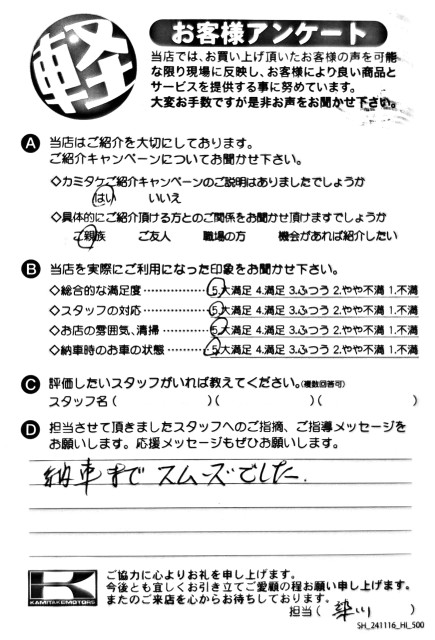 軽
お客様アンケート
当店では、お買い上げ頂いたお客様の声を可能
な限り現場に反映し、お客様により良い商品と
サービスを提供する事に努めています。
大変お手数ですが是非お声をお聞かせ下さい。
A 当店はご紹介を大切にしております。
ご紹介キャンペーンについてお聞かせ下さい。
◇カミタケご紹介キャンペーンのご説明はありましたでしょうか
はい いいえ
◇具体的にご紹介頂ける方とのご関係をお聞かせ頂けますでしょうか
ご親族 ご友人 職場の方 機会があれば紹介したい
B 当店を実際にご利用になった印象をお聞かせ下さい。
◇総合的な満足度⋯⋯⋯⋯⋯5.大満足 4.満足 3.ふつう 2.やや不満 1.不満
◇スタッフの対応⋯⋯⋯⋯⋯5.大満足 4.満足 3.ふつう 2.やや不満 1.不満
◇お店の雰囲気、清掃⋯⋯⋯5.大満足 4.満足 3.ふつう 2.やや不満 1.不満
◇納車時のお車の状態⋯⋯⋯5.大満足 4.満足 3.ふつう 2.やや不満 1.不満
C 評価したいスタッフがいれば教えてください。(複数回答可)
スタッフ名 ( )( )( )
D 担当させて頂きましたスタッフへのご指摘、ご指導メッセージを
お願いします。応援メッセージもぜひお願いします。
納車まで スムーズでした.
K
KAMITAKEMOTORS
ご協力に心よりお礼を申し上げます。
今後とも宜しくお引き立てご愛顧の程お願い申し上げます。
またのご来店を心からお待ちしております。
担当 ( 川 )
SH_241116_HI_500